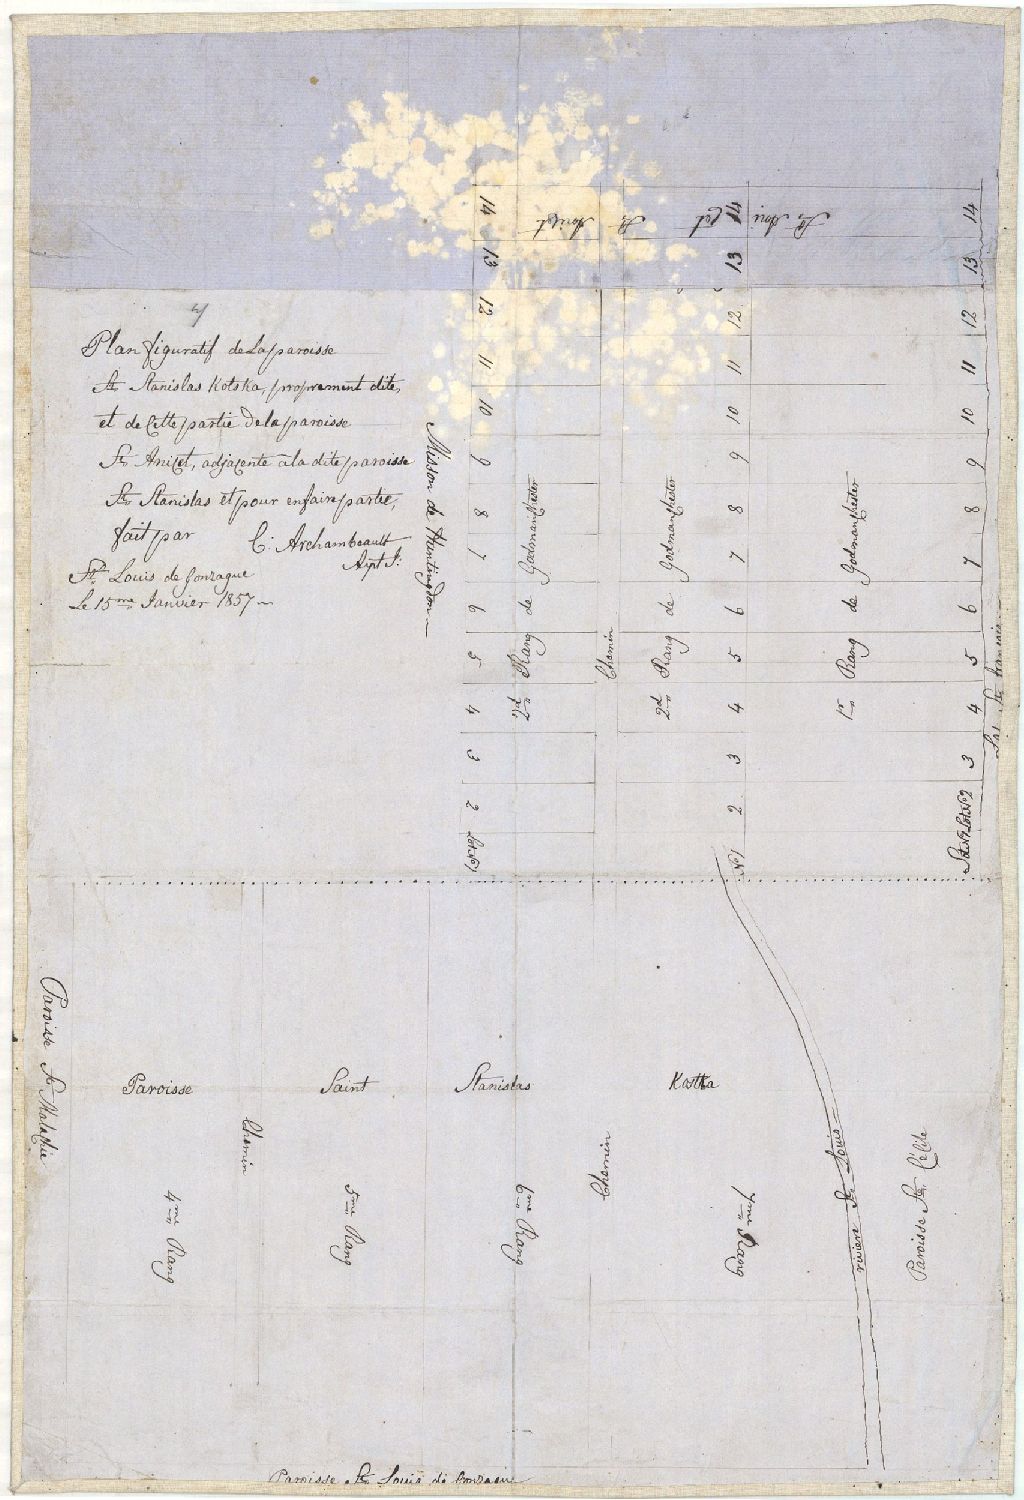 4
Plan figuratif de La paroisse
St Stanislas Kotska, proprement dite,
et de Cette partie de la paroisse
St Aniçet, adjaçente à la dite paroisse
St Stanislas et pour en faire partie,
fait par C. Archambeault
Arpt J.
St Louis de Gonzague
Le 15me Janvier 1857
Misson de Huntingdon
14
13
12
11
10
9
8
7
6
5
4
3
2
Lot No 1
St Aniçet
2d Rang de Godmanchester
Chemin
14
13
12
11
10
9
8
7
6
5
4
3
2
No 1
2d Rang de Godmanchester
1r Rang de Godmanchester
14
13
12
11
10
9
8
7
6
5
4
3
Lot No 1 Lot No 2
Lac St francais
Paroisse St Malachie
Paroisse Saint Stanislas Kostka
Chemin
Chemin
4me Rang
5me Rang
6me Rang
7me Rang
riviere St Louis
Paroisse Ste Céçile
Paroisse St Louis de Gonzague